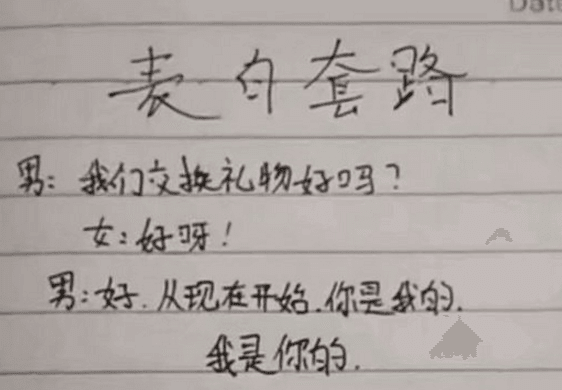 Date
表白套路
男：我们交换礼物好吗？
女：好呀！
男：好．从现在开始．你是我的．
我是你的．